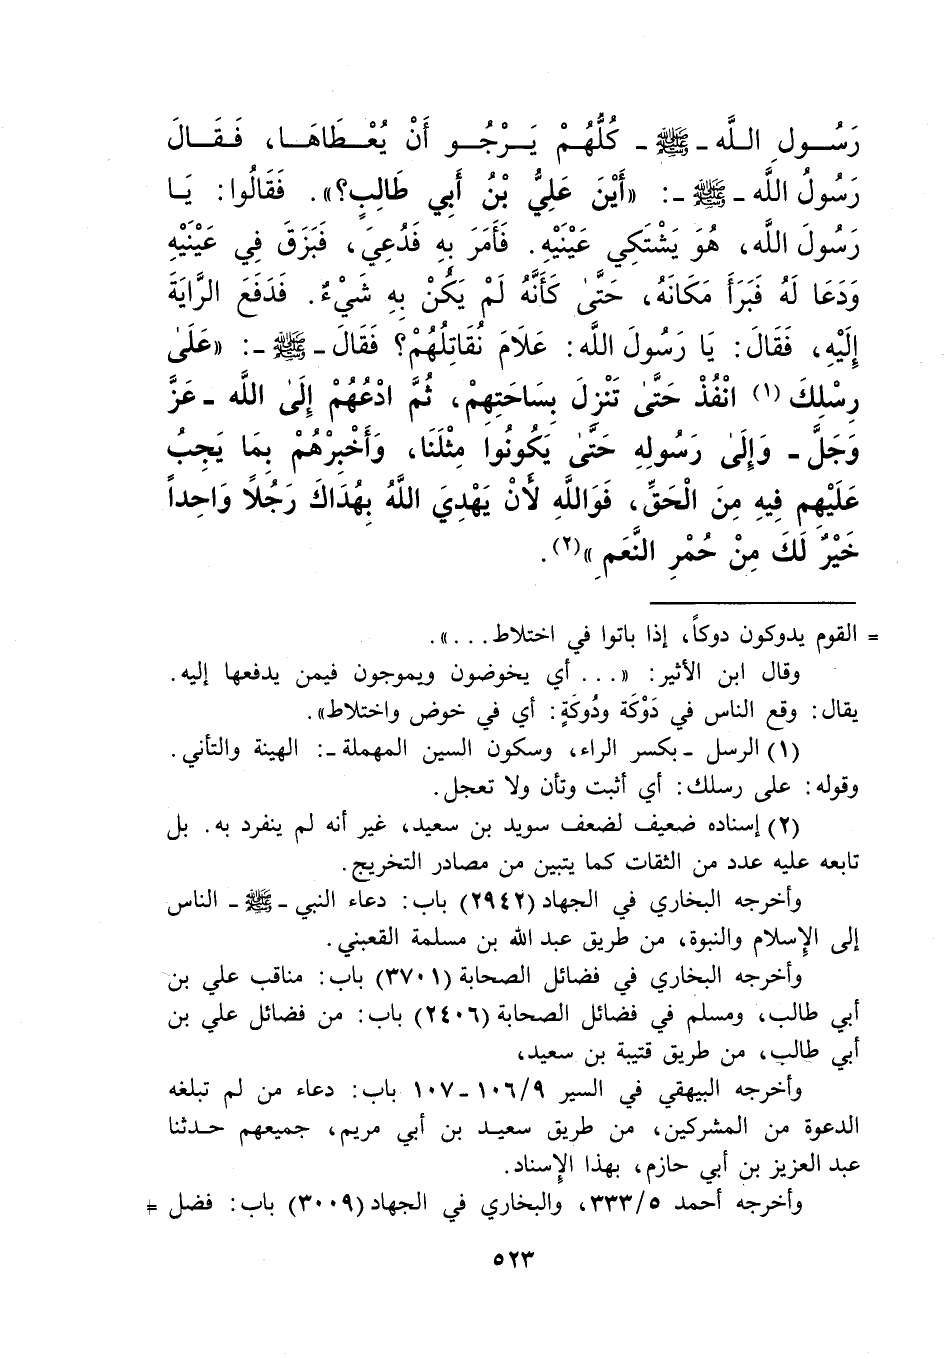 رَسُــولِ اللَّه ـ ﷺ ـ كُلُّهُمْ يَـرْجُـو أَنْ يُعْـطَاهَـا، فَـقَـالَ
رَسُولُ اللَّه ـ ﷺ ـ: «أَيْنَ عَلِيُّ بْنُ أَبِي طَالِبٍ؟». فَقَالُوا: يَـا
رَسُولَ اللَّه، هُوَ يَشْتَكِي عَيْنَيْهِ. فَأَمَرَ بِهِ فَدُعِيَ، فَبَزَقَ فِي عَيْنَيْهِ
وَدَعَا لَهُ فَبَرَأَ مَكَانَهُ، حَتَّىٰ كَأَنَّهُ لَمْ يَكُنْ بِهِ شَيْءٌ. فَدَفَعَ الرَّايَةَ
إِلَيْهِ، فَقَالَ: يَا رَسُولَ اللَّه: عَلَامَ نُقَاتِلُهُمْ؟ فَقَالَ ـ ﷺ ـ: «عَلَىٰ
رِسْلِكَ (١) انْفُذْ حَتَّىٰ تَنْزِلَ بِسَاحَتِهِمْ، ثُمَّ ادْعُهُمْ إِلَىٰ اللَّه ـ عَزَّ
وَجَلَّ ـ وَإِلَىٰ رَسُولِهِ حَتَّىٰ يَكُونُوا مِثْلَنَا، وَأَخْبِرْهُمْ بِمَا يَجِبُ
عَلَيْهِم فِيهِ مِنَ الْحَقِّ، فَوَاللَّهِ لأَنْ يَهْدِيَ اللَّهُ بِهُدَاكَ رَجُلاً وَاحِداً
خَيْرٌ لَكَ مِنْ حُمْرِ النَّعَمِ»(٢).
= القوم يدوكون دوكاً، إذا باتوا في اختلاط...».
وقال ابن الأثير: «... أي يخوضون ويموجون فيمن يدفعها إليه.
يقال: وقع الناس في دَوْكَة ودُوكَةٍ: أي في خوض واختلاط».
(١) الرسل ـ بكسر الراء، وسكون السين المهملة ـ: الهينة والتأني.
وقوله: على رسلك: أي أثبت وتأن ولا تعجل.
(٢) إسناده ضعيف لضعف سويد بن سعيد، غير أنه لم ينفرد به. بل
تابعه عليه عدد من الثقات كما يتبين من مصادر التخريج.
وأخرجه البخاري في الجهاد (٢٩٤٢) باب: دعاء النبي ـ ﷺ ـ الناس
إلى الإسلام والنبوة، من طريق عبد الله بن مسلمة القعبني.
وأخرجه البخاري في فضائل الصحابة (٣٧٠١) باب: مناقب علي بن
أبي طالب، ومسلم في فضائل الصحابة (٢٤٠٦) باب: من فضائل علي بن
أبي طالب، من طريق قتيبة بن سعيد،
وأخرجه البيهقي في السير ١٠٦/٩ ـ ١٠٧ باب: دعاء من لم تبلغه
الدعوة من المشركين، من طريق سعيد بن أبي مريم، جميعهم حدثنا
عبد العزيز بن أبي حازم، بهذا الإسناد.
وأخرجه أحمد ٣٣٣/٥، والبخاري في الجهاد (٣٠٠٩) باب: فضل =
٥٢٣